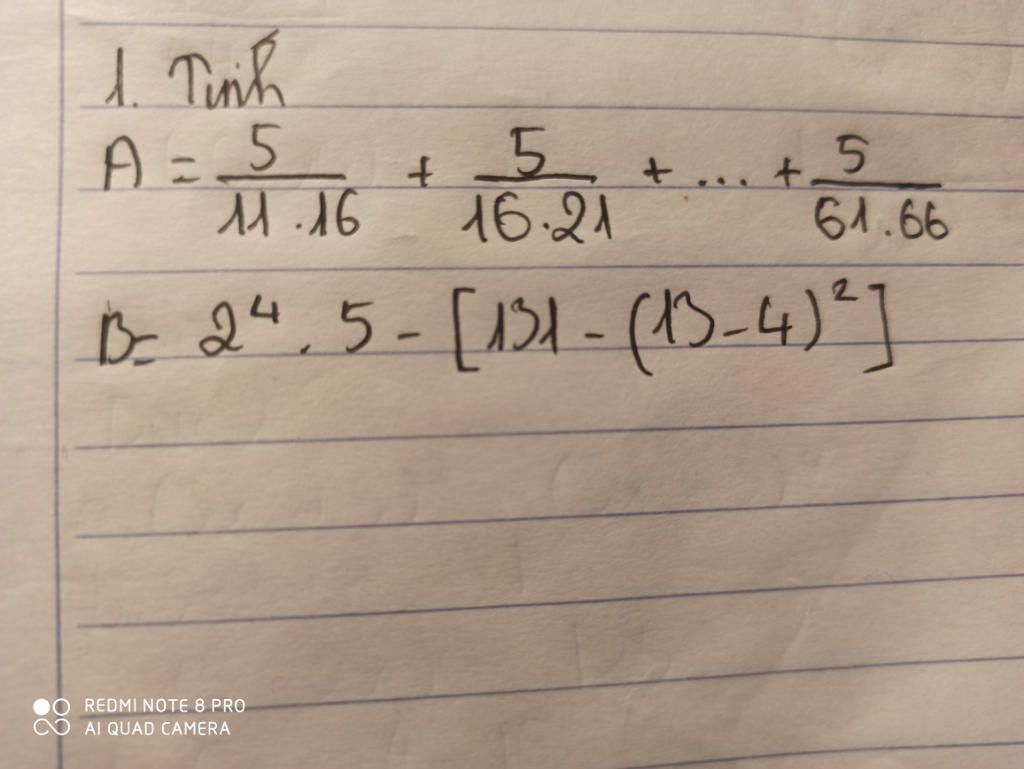 1. Tính
A = 5/11.16 + 5/16.21 + ... + 5/61.66
B = 2⁴ . 5 - [131 - (13 - 4)²]
REDMI NOTE 8 PRO
AI QUAD CAMERA